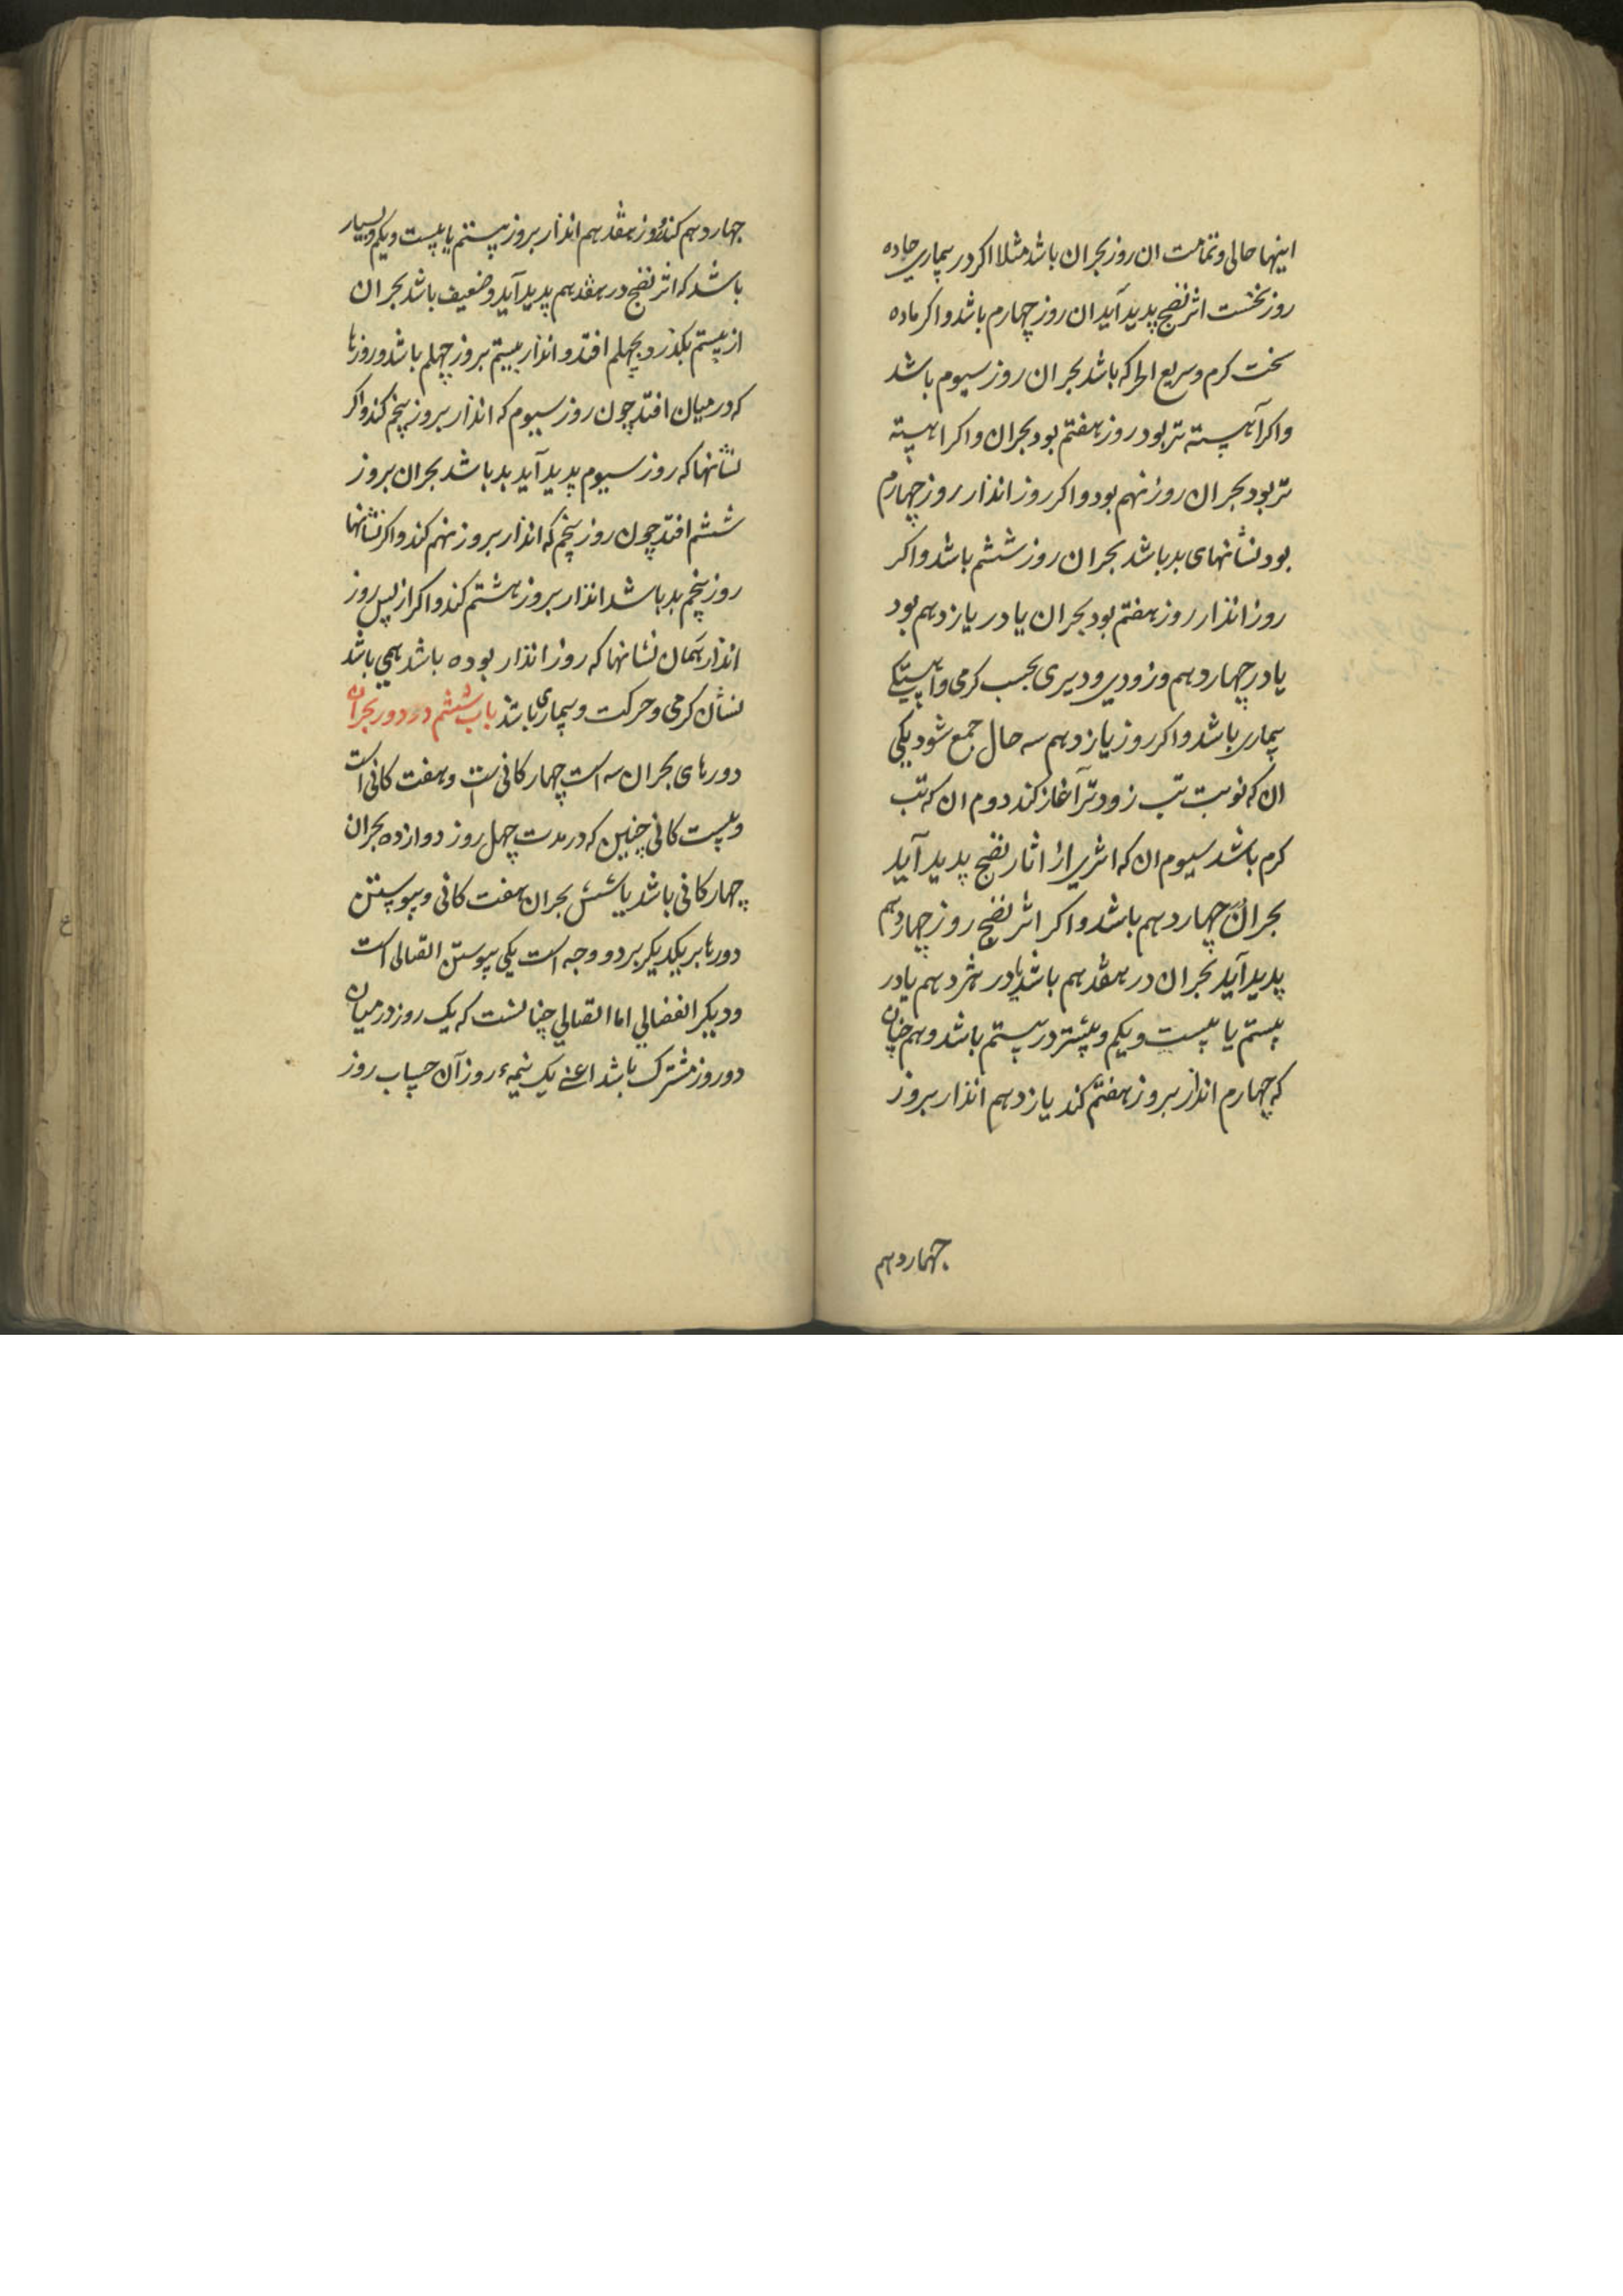 اینها حالی و تمامت ان روز بحران باشد مثلا اکر در بیماری حاده
روز نخست اثر نضج پدید آید ان روز چهارم باشد و اکر ماده
سخت کرم و سریع الحرکه باشد بحران روز سیوم باشد
و اکر آهسته تر بود روز هفتم بود بحران و اکر اهسته
تر بود بحران روز نهم بود و اکر روز انذار روز چهارم
بود نشانهای بد باشد بحران روز ششم باشد و اکر
روز انذار روز هفتم بود بحران یا در یازدهم بود
یا در چهاردهم و زودی و دیری بحسب کرمی و اهستکی
بیماری باشد و اکر روز یازدهم سه حال جمع شود یکی
ان که نوبت تب زودتر آغاز کند دوم ان که تب
کرم باشد سیوم ان که اثری از اثار نضج پدید آید
بحران چهاردهم باشد و اکر اثر نضج روز چهاردهم
پدید آید بحران در هفدهم باشد یا در هژدهم یا در
بیستم یا بیست و یکم و بیشتر در بیستم باشد و هم چنان
که چهارم انذار بروز هفتم کند یازدهم انذار بروز
چهاردهم
چهاردهم کند و روز هفدهم انذار بروز بیستم یا بیست و یکم و بسیار
باشد که اثر نضج در هفدهم پدید آید و ضعیف باشد بحران
از بیستم بکذرد و بچهلم افتد و انذار بیستم بروز چهلم باشد و روزها
که در میان افتد چون روز سیوم که انذار بروز پنجم کند و اکر
نشانها که روز سیوم پدید آید بد باشد بحران بروز
ششم افتد چون روز پنجم که انذار بروز نهم کند و اکر نشانها
روز پنجم بد باشد انذار بروز هشتم کند و اکر از پس روز
انذار همان نشانها که روز انذار بوده باشد همی باشد
نشان کرمی و حرکت و بیماری باشد باب ششم در دور بحران
دورهای بحران سه است چهارکانی است و هفت کانی است
و بیست کانی چنین که در مدت چهل روز دوازده بحران
چهارکانی باشد یا شش بحران هفت کانی و پیوستن
دورها بر یکدیکر بر دو وجه است یکی پیوستن اتصالی است
و دیکر انفصالی اما اتصالی چنانست که یک روز در میان
دو روز مشترک باشد اعنی یک نیمهٔ روز آن حساب روز